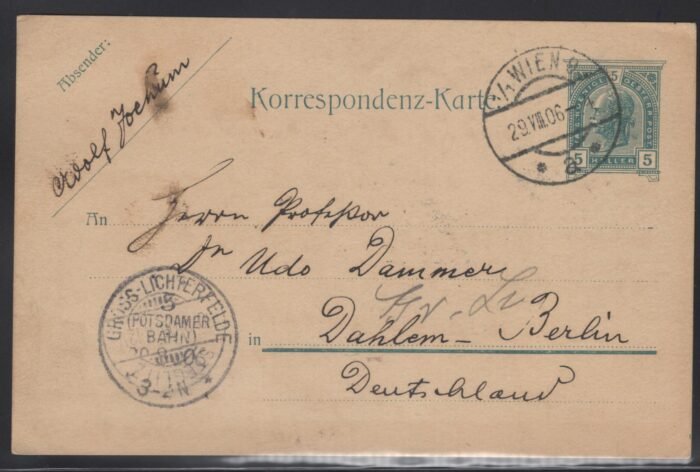 Absender:
Adolf Jochum
Korrespondenz-Karte
1/1 WIEN
29.VIII.06
* 8 *
5
5 HELLER 5
An Herrn Professor
Dr Udo Dammer
Gr. Li
in Dahlem - Berlin
Deutschland
GROSS-LICHTERFELDE
5
(POTSDAMER
BAHN)
2-3 N
*